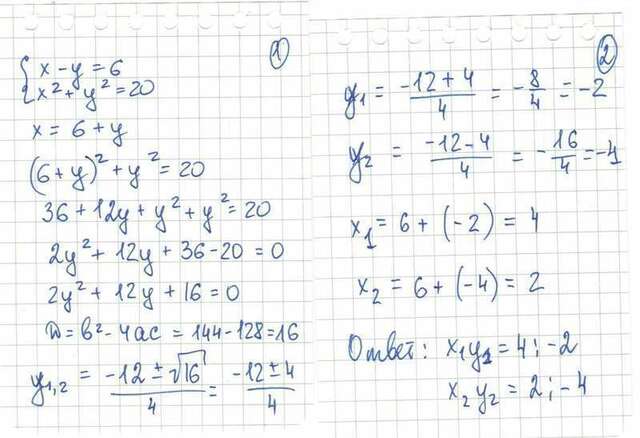 ①
{ x - y = 6
x² + y² = 20
x = 6 + y
(6 + y)² + y² = 20
36 + 12y + y² + y² = 20
2y² + 12y + 36 - 20 = 0
2y² + 12y + 16 = 0
D = b² - 4ac = 144 - 128 = 16
y₁,₂ = (-12 ± √16)/4 = (-12 ± 4)/4
②
y₁ = (-12 + 4)/4 = -8/4 = -2
y₂ = (-12 - 4)/4 = -16/4 = -4
x₁ = 6 + (-2) = 4
x₂ = 6 + (-4) = 2
Ответ: x₁y₁ = 4; -2
x₂y₂ = 2; -4